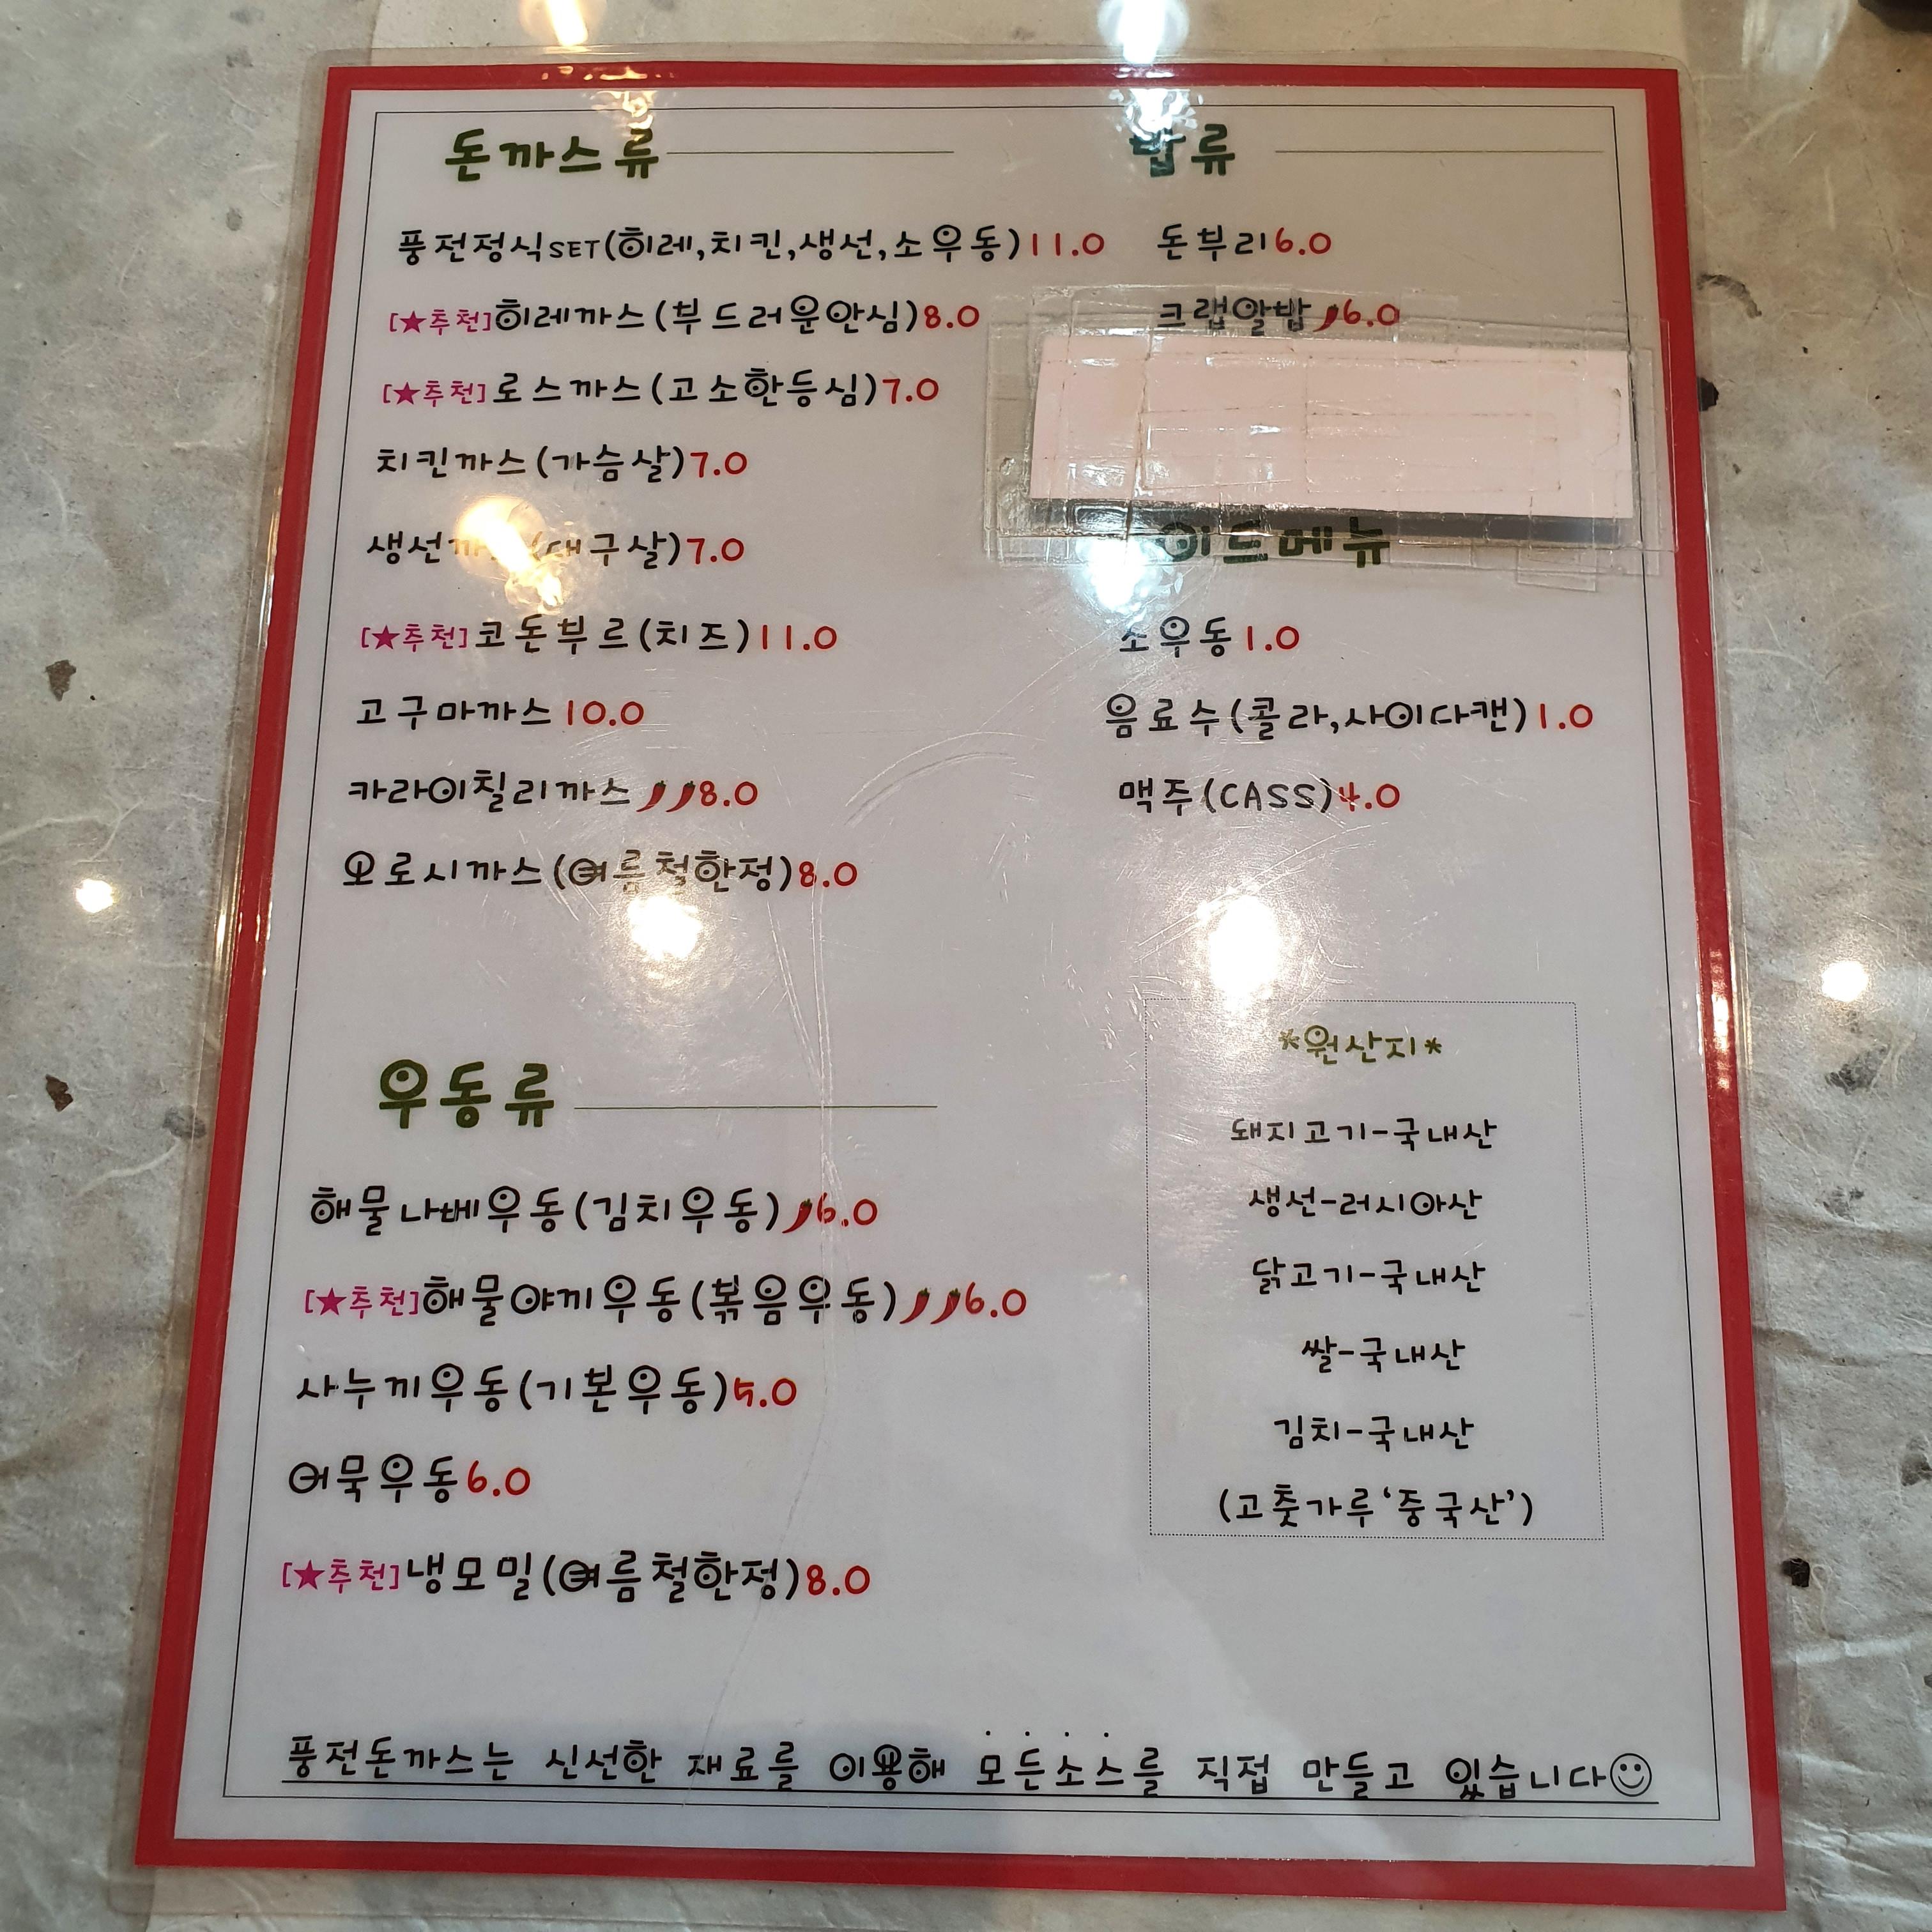 돈까스류
풍전정식SET(히레,치킨,생선,소우동)11.0
[★추천]히레까스(부드러운안심)8.0
[★추천]로스까스(고소한등심)7.0
치킨까스(가슴살)7.0
생선까스(대구살)7.0
[★추천]코돈부르(치즈)11.0
고구마까스10.0
카라이칠리까스8.0
오로시까스(여름철한정)8.0
우동류
해물나베우동(김치우동)6.0
[★추천]해물야끼우동(볶음우동)6.0
사누끼우동(기본우동)5.0
어묵우동6.0
[★추천]냉모밀(여름철한정)8.0
밥류
돈부리6.0
크랩알밥6.0
이드메뉴
소우동1.0
음료수(콜라,사이다캔)1.0
맥주(CASS)4.0
*원산지*
돼지고기-국내산
생선-러시아산
닭고기-국내산
쌀-국내산
김치-국내산
(고춧가루‘중국산’)
풍전돈까스는 신선한 재료를 이용해 모든소스를 직접 만들고 있습니다☺